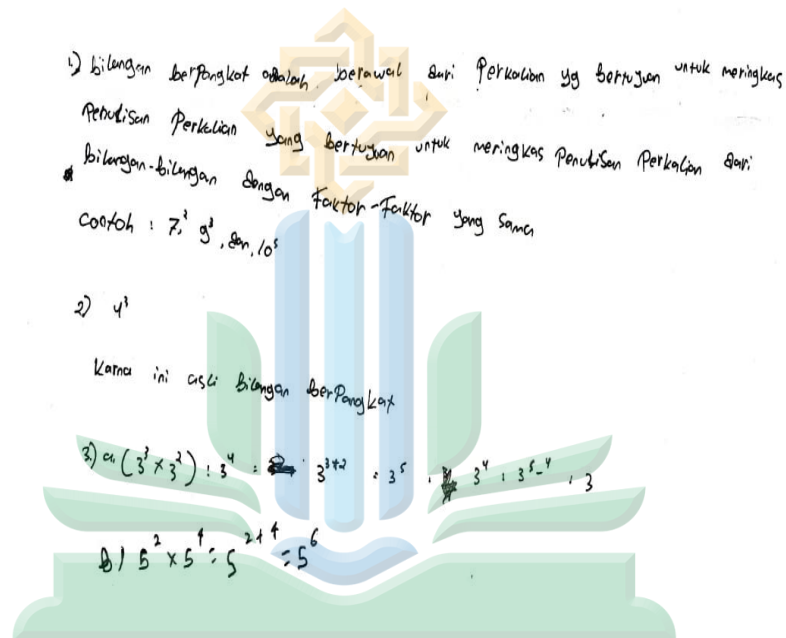 1.) bilangan berpangkat adalah berawal dari Perkalian yg bertujuan untuk meringkas
Penulisan Perkalian yang bertujuan untuk meringkas Penulisan Perkalian dari
bilangan-bilangan dengan Faktor-Faktor yang sama
contoh : 7², 9³, dan, 10⁵
2) 4³
Karna ini asli bilangan berPangkat
3.) a, (3³ × 3²) : 3⁴ = 3³⁺² = 3⁵ : 3⁴ : 3⁵⁻⁴ : 3
b) 5² × 5⁴ = 5²⁺⁴ = 5⁶